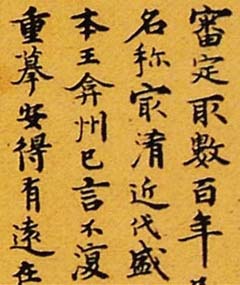 審定取數百年
名称㝡淆近代盛
本王弇州已言不復
重摹安得有遠在